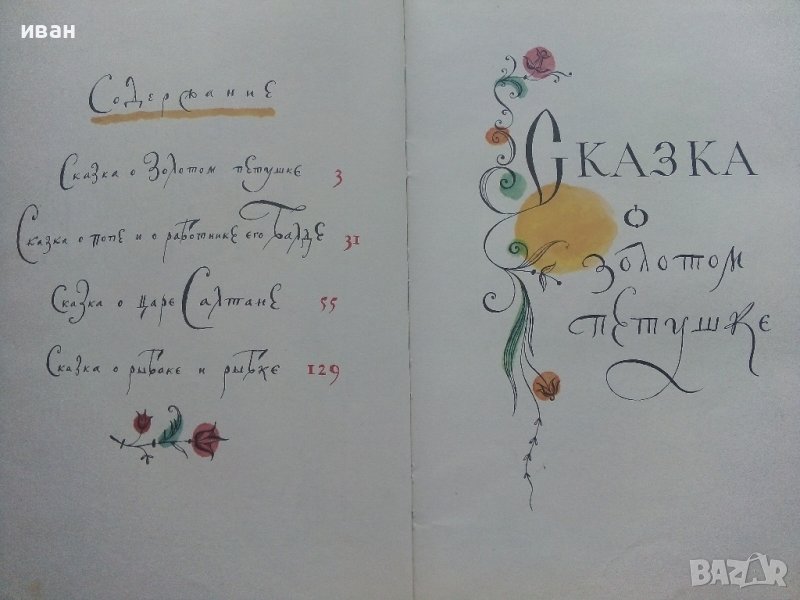 иван
Содержание
Сказка о Золотом петушке 3
Сказка о попе и о работнике его Балде 31
Сказка о царе Салтане 55
Сказка о рыбаке и рыбке 129
Сказка
о
золотом
петушке
BAZAR